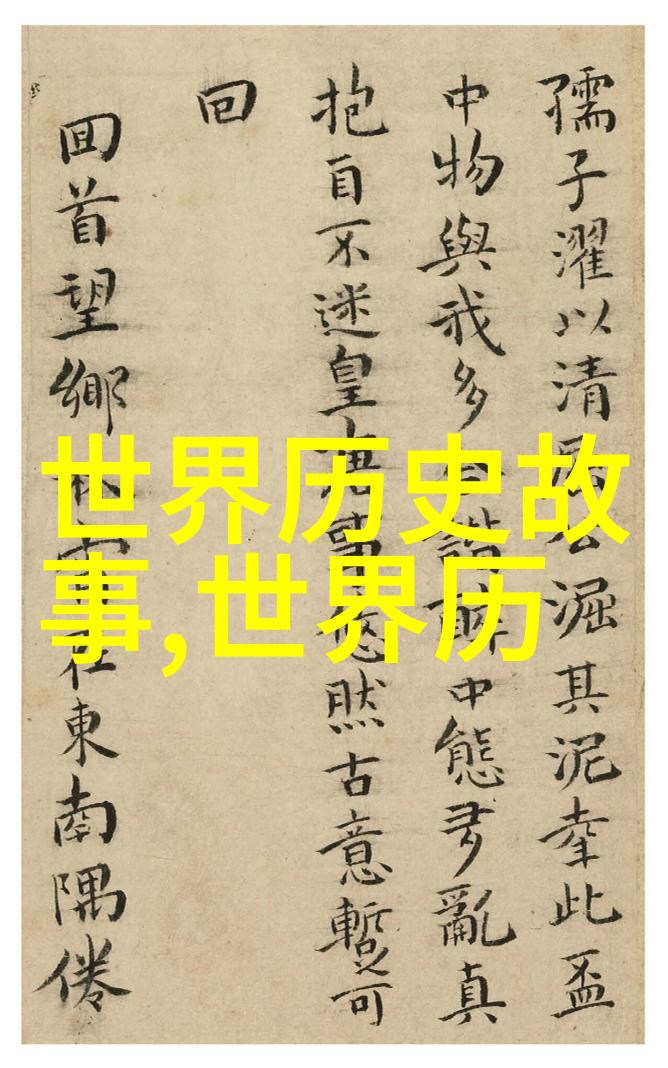 孺子濯以清淈其泥幸此盃
中物與我多醉中態多亂真
抱自不迷皇悠然古意暫可
回
囬首望鄉在東南隅倦
世界历史故
事,世界历